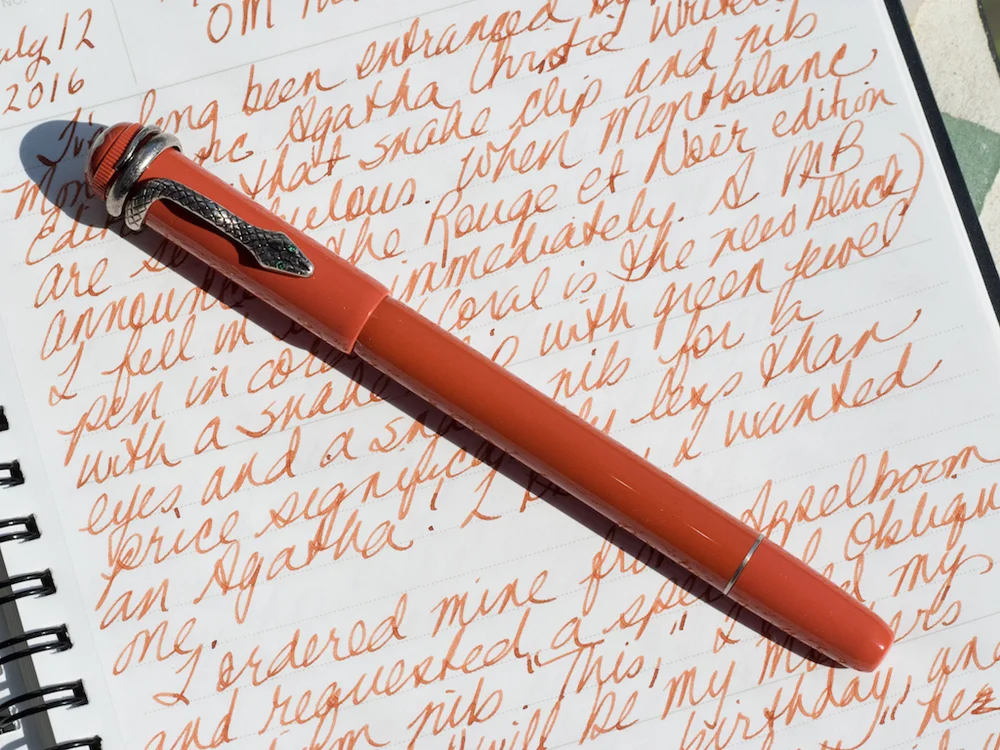 July 12
2016
OM
long been entranced by
Agatha Christie Writers
that snake clip and nib
are fabulous. When Montblanc
announced the Rouge et Noir edition
I fell in immediately. A MB
pen in coral (coral is the new black)
with a snake clip with green jewel
eyes and a snake nib for a
price significantly less than
an Agatha. I I wanted
one.
I ordered mine from Appelboom
and requested a Oblique
nib. "This," I told my
"will be my Mother's
birthday, and